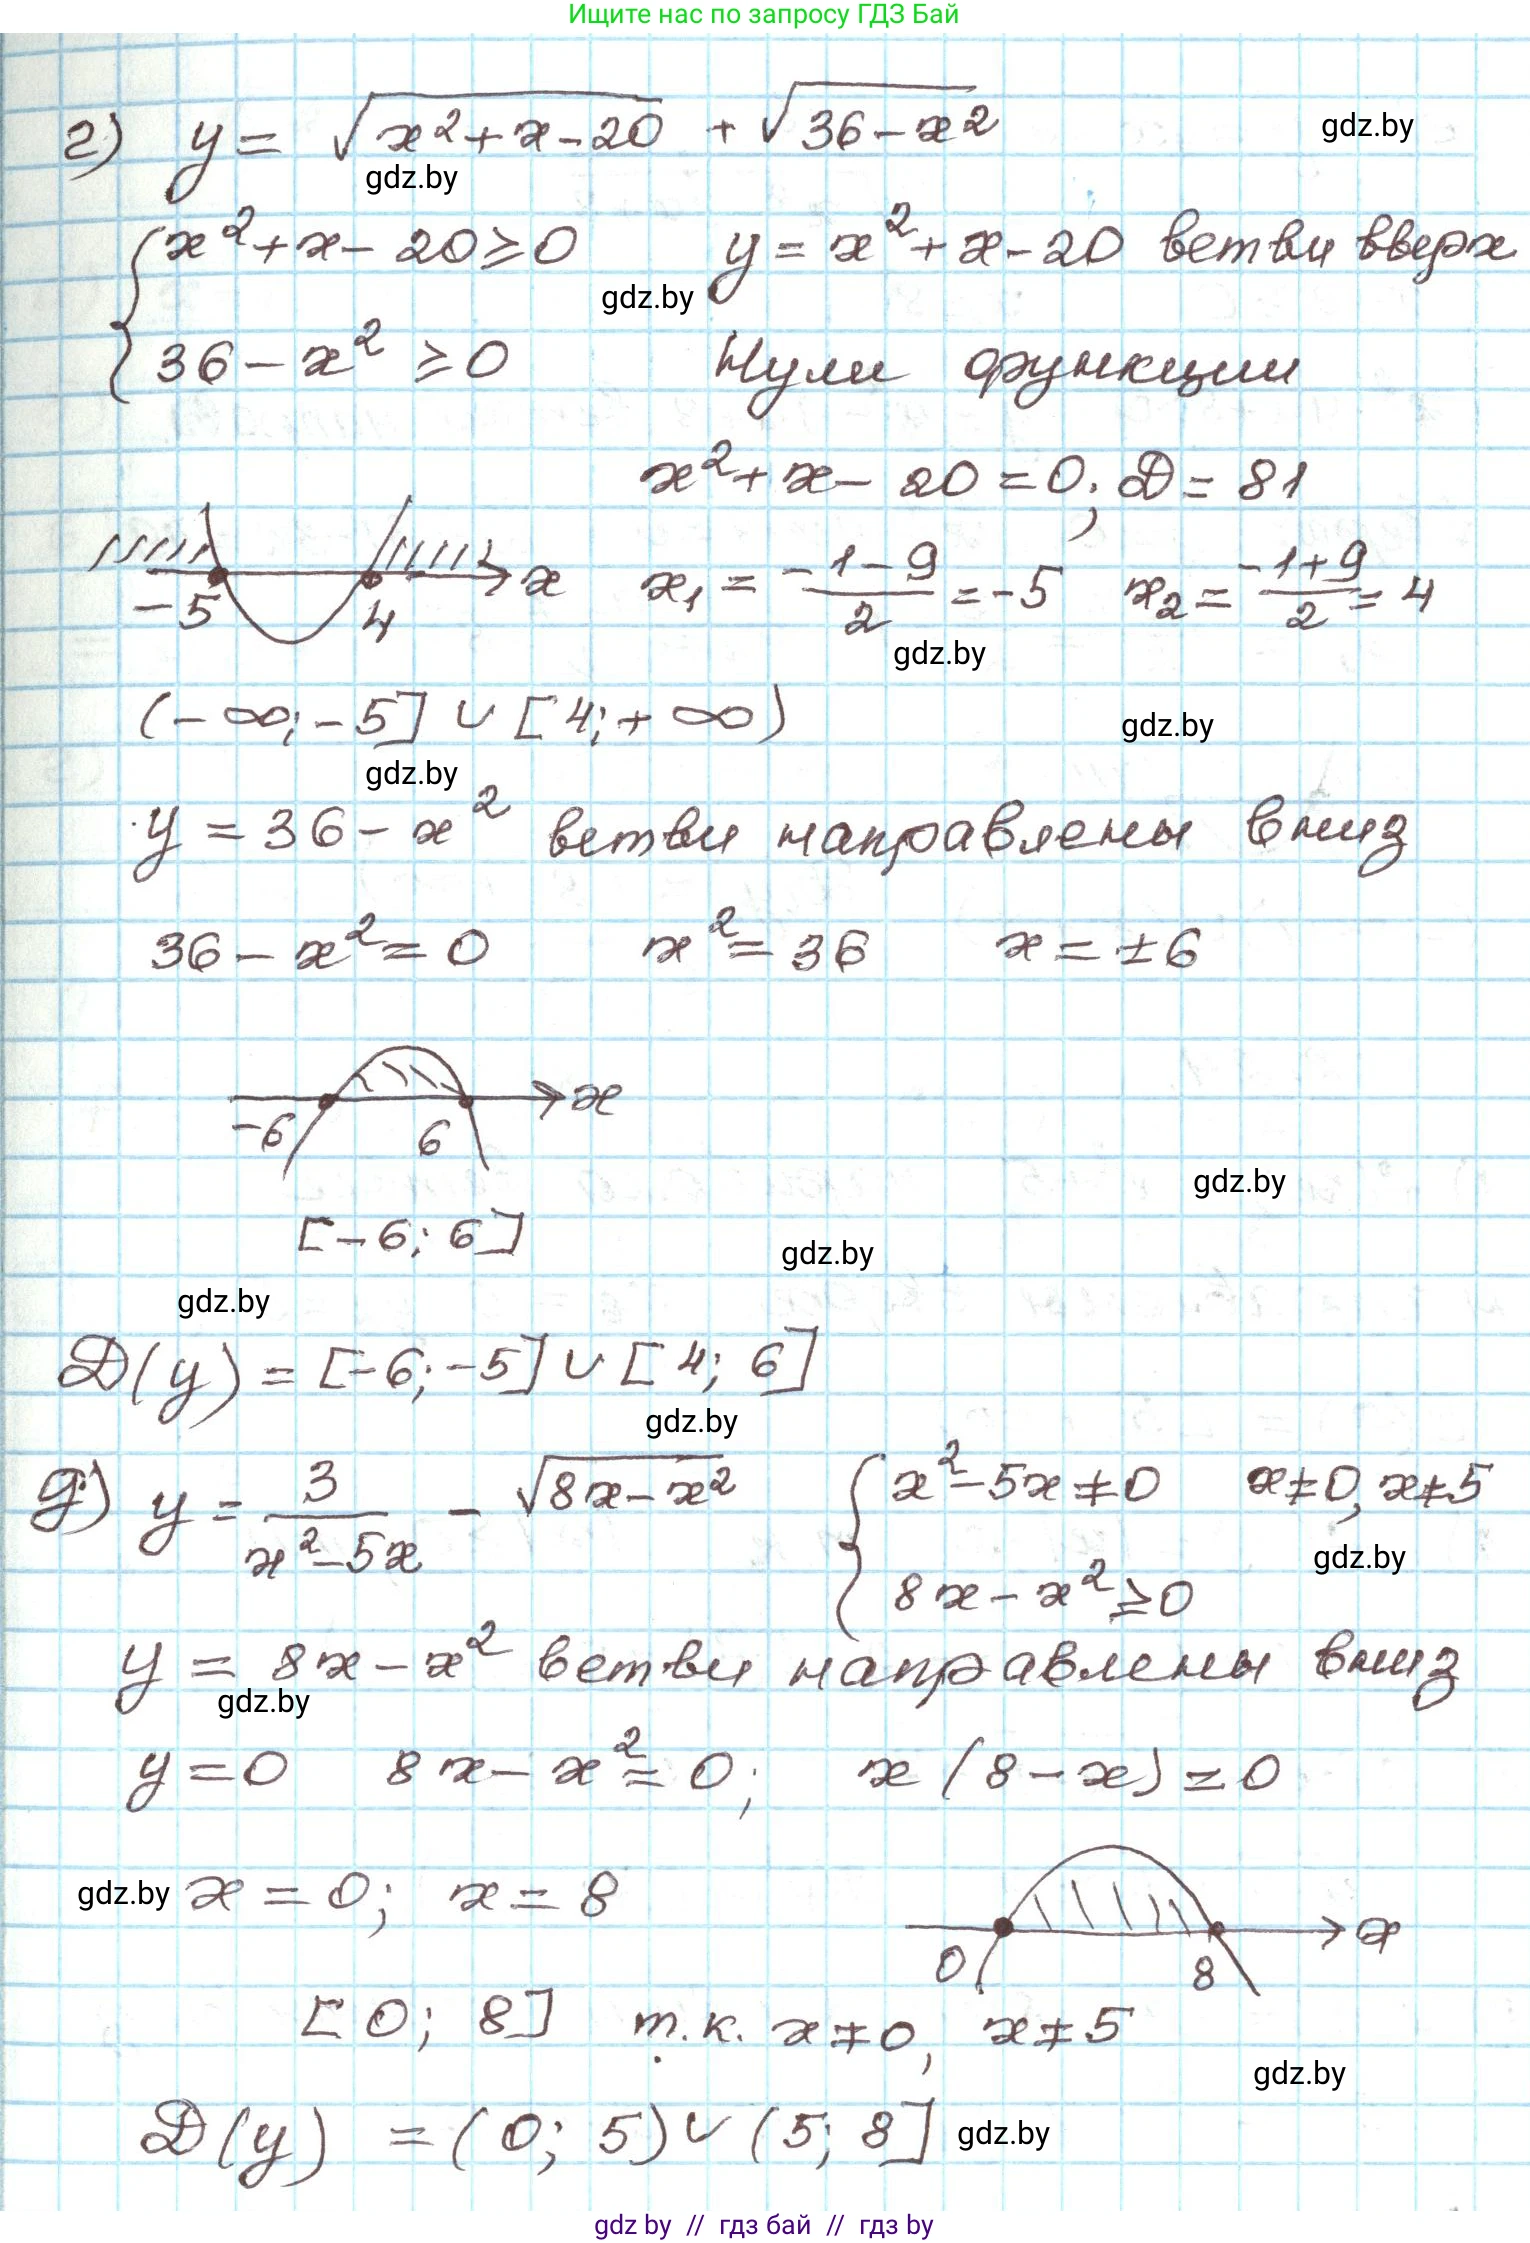 Ищите нас по запросу ГДЗ Бай
г) y = √(x²+x-20) + √(36-x²)
gdz.by
gdz.by
{ x²+x-20≥0 y = x²+x-20 ветви вверх
gdz.by
36-x² ≥0 Нули функции
x²+x-20=0; D=81
-5 4 x x₁ = -1-9/2 = -5 x₂ = -1+9/2 = 4
gdz.by
(-∞;-5] ∪ [4;+∞)
gdz.by
gdz.by
y = 36-x² ветви направлены вниз
36-x²=0 x²=36 x=±6
-6 6 x
gdz.by
[-6; 6]
gdz.by
gdz.by
D(y) = [-6;-5] ∪ [4; 6]
gdz.by
д) y = 3/(x²-5x) - √(8x-x²) { x²-5x≠0 x≠0, x≠5
gdz.by
8x-x²≥0
y = 8x-x² ветви направлены вниз
gdz.by
y=0 8x-x²=0; x(8-x)=0
gdz.by x=0; x=8
0 8 x
[0; 8] т.к. x≠0, x≠5
gdz.by
D(y) = (0; 5)∪(5; 8]
gdz.by
gdz by // гдз бай // гдз by